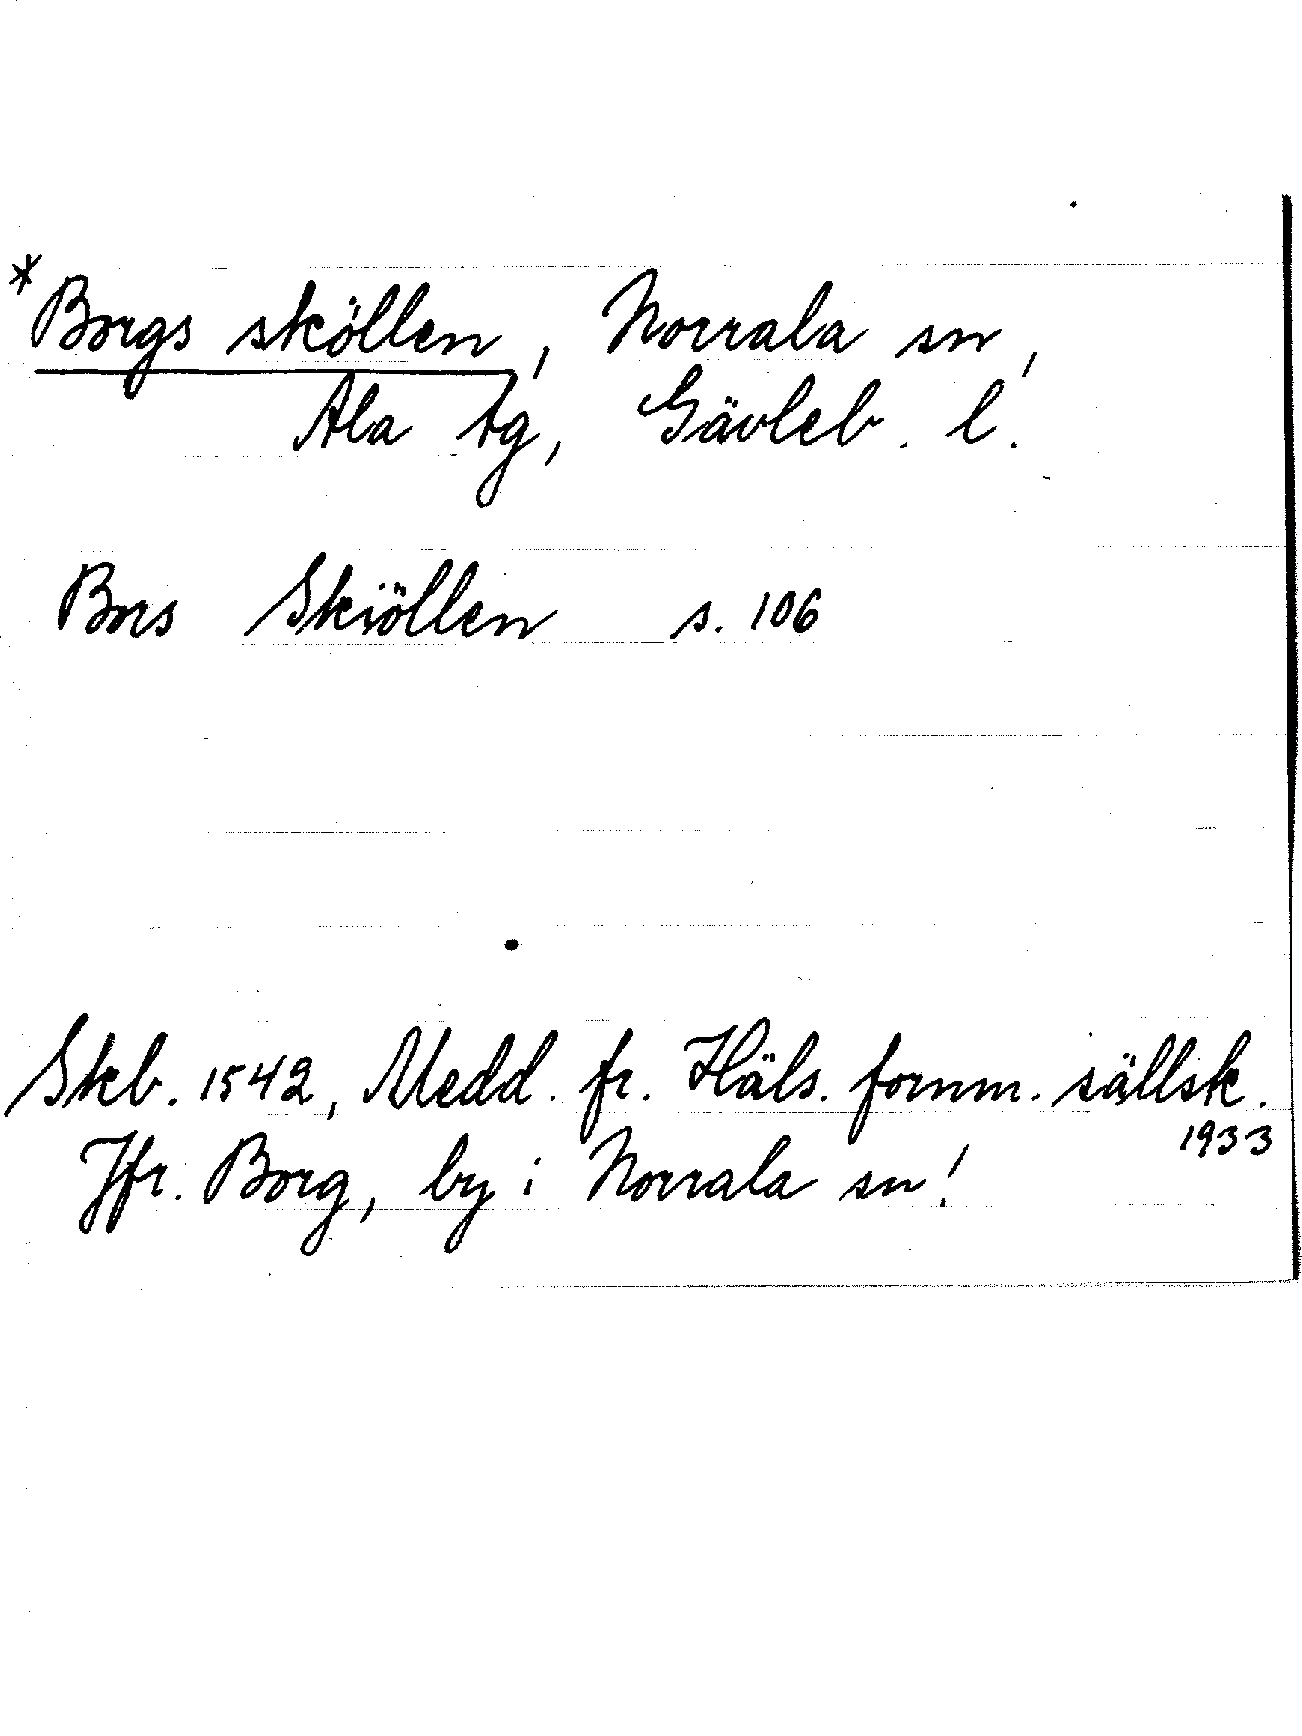 *Borgs sköllen, Norrala sn,
Ala tg, Gävleb. l.
Bors Skiöllen s. 106
Skb. 1542, Medd. fr. Häls. fornm. sällsk.
1933
Jfr. Borg, by i Norrala sn!